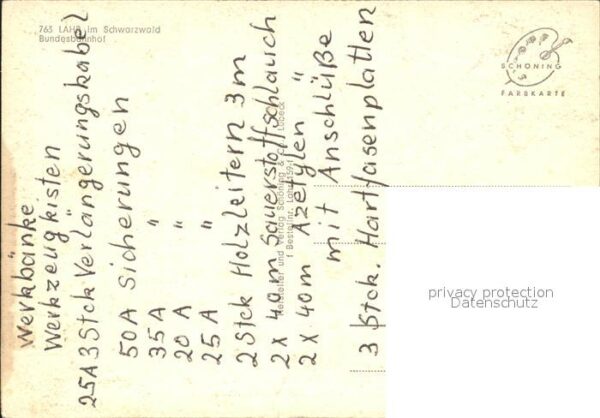 763 LAHR im Schwarzwald
Bundesbahnhof
SCHÖNING
FARBKARTE
Werkbänke
Werkzeugkisten
25A 3 Stck Verlängerungskabel
50 A Sicherungen
35 A "
20 A "
25 A "
2 Stck Holzleitern 3 m
2 x 40 m Sauerstoffschlauch
2 x 40 m Azetylen "
mit Anschlüße
3 Stck. Hartfasenplatten
Hersteller und Verlag Schöning & Co., Lübeck
Bestellnr. Lahr
privacy protection
Datenschutz